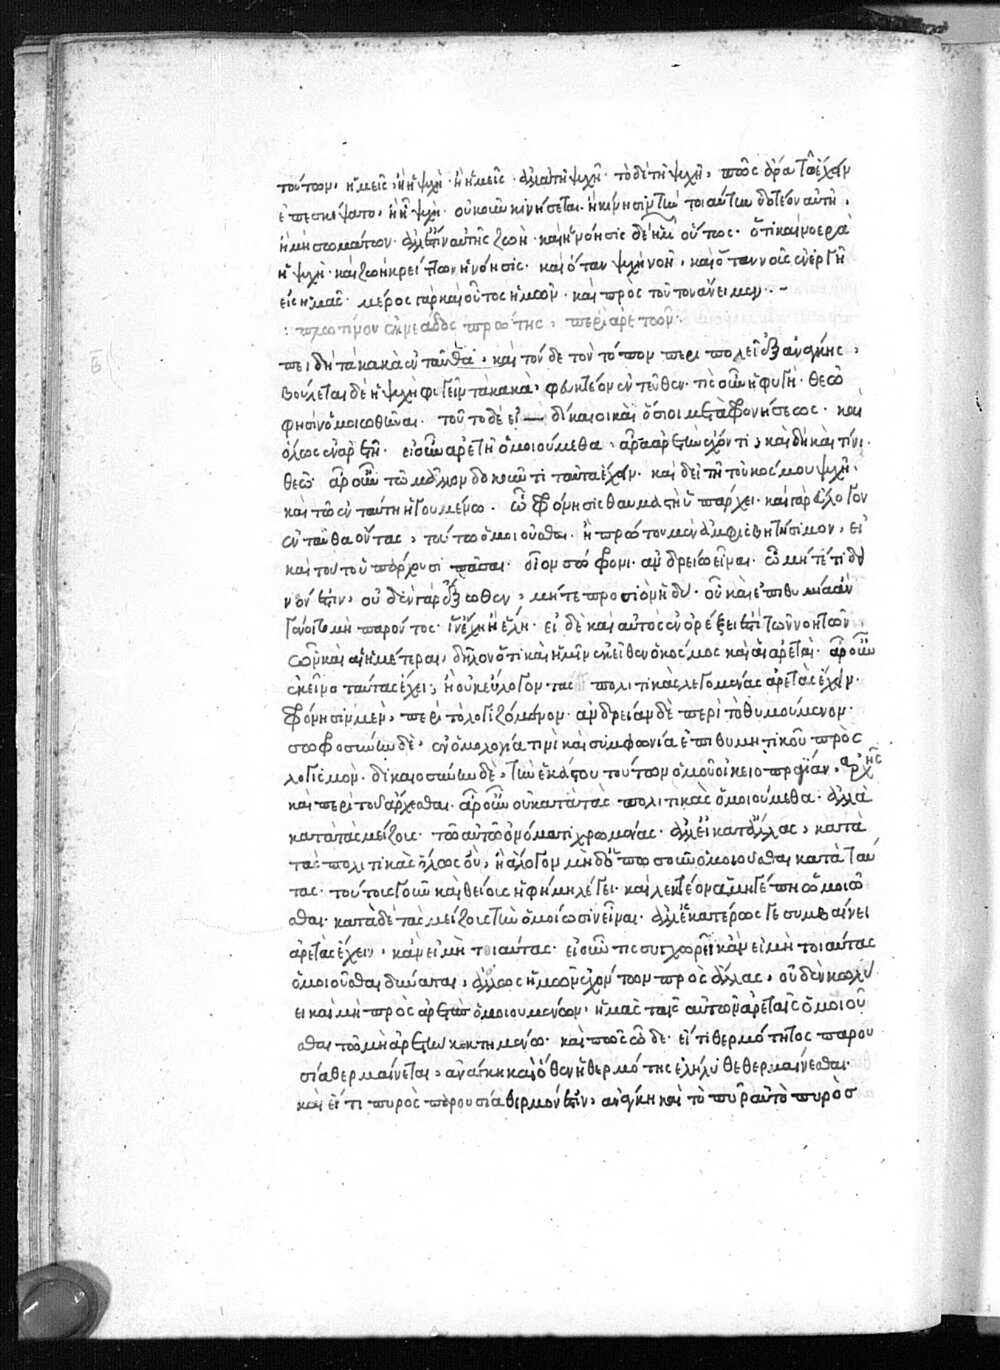 τούτων, ἡμεῖς, ἢ ἡ ψυχή· ἢ ἡμεῖς· ἀλλὰ τῇ ψυχῇ· τὸ δὲ τῇ ψυχῇ, πῶς ἆρα τῷ ἔχειν
ἐπεσκέψατο, ἢ ἡ ψυχή· οὐκοῦν κινήσεται· ἢ κίνησιν τὴν τοιαύτην δοτέον αὐτῇ,
ἣ μὴ σωμάτων· ἀλλ' ἐστὶν αὐτῆς ζωή· καὶ ἡ νόησις δὲ ἡμῶν οὕτως· ὅτι καὶ νοερὰ
ἡ ψυχή· καὶ ζωὴ κρείττων ἡ νόησις· καὶ ὅταν ψυχὴ νοῇ, καὶ ὅταν νοῦς ἐνεργῇ
εἰς ἡμᾶς· μέρος γὰρ καὶ οὗτος ἡμῶν· καὶ πρὸς τοῦτον ἄνειμεν·-
: πλωτίνου ἐννεάδος πρώτης, περὶ ἀρετῶν·
πειδὴ τὰ κακὰ ἐνταῦθα, καὶ τόνδε τὸν τόπον περιπολεῖ ἐξ ἀνάγκης,
βούλεται δὲ ἡ ψυχὴ φυγεῖν τὰ κακά, φευκτέον ἐντεῦθεν· τίς οὖν ἡ φυγή· θεῷ
φησὶν ὁμοιωθῆναι· τοῦτο δὲ εἰ — δίκαιοι καὶ ὅσιοι μετὰ φρονήσεως· καὶ
ὅλως ἐν ἀρετῇ· εἰ οὖν ἀρετῇ ὁμοιούμεθα, ἆρα ἀρετὴν ἔχοντι, καὶ δὴ καὶ τίνι
θεῷ· ἆρ' οὖν τῷ μᾶλλον δοκοῦντι ταῦτα ἔχειν· καὶ δὴ τῇ τοῦ κόσμου ψυχῇ·
καὶ τῷ ἐν ταύτῃ ἡγουμένῳ· ᾧ φρόνησις θαυμαστὴ ὑπάρχει· καὶ γὰρ εὔλογον
ἐνταῦθα ὄντας, τούτῳ ὁμοιοῦσθαι· ἢ πρῶτον μὲν ἀμφισβητήσιμον, εἰ
καὶ τούτῳ ὑπάρχουσι πᾶσαι· οἷον σώφρονι· ἀνδρείῳ εἶναι· ᾧ μήτέ τι δει
νόν ἐστιν, οὐδὲν γὰρ ἔξωθεν, μήτε προσιὸν ἡδὺ· οὗ καὶ ἐπιθυμία ἂν
γένοιτο μὴ παρόντος· ἵν' ἔχῃ ἢ ἕλῃ· εἰ δὲ καὶ αὐτὸς ἐν ὀρέξει ἐστὶ τῶν νοητῶν,
ὧν καὶ αἱ ἡμέτεραι, δῆλον ὅτι καὶ ἡμῖν ἐκεῖθεν ὁ κόσμος καὶ αἱ ἀρεταί· ἆρ' οὖν
ἐκεῖνο ταύτας ἔχει, ἢ οὐκ εὔλογον τάς γε πολιτικὰς λεγομένας ἀρετὰς ἔχειν·
φρόνησιν μὲν, περὶ τὸ λογιζόμενον· ἀνδρείαν δὲ περὶ τὸ θυμούμενον·
σωφροσύνην δὲ, ἐν ὁμολογίᾳ τινὶ καὶ συμφωνίᾳ ἐπιθυμητικοῦ πρὸς
λογισμόν· δικαιοσύνην δὲ, τὴν ἑκάστου τούτων ὁμοῦ οἰκειοπραγίαν, ἀρχῆς
καὶ πέρι τοῦ ἄρχεσθαι· ἆρ' οὖν οὐ κατὰ τὰς πολιτικὰς ὁμοιούμεθα· ἀλλὰ
κατὰ τὰς μείζους· τῷ αὐτῷ ὀνόματι χρωμένας· ἀλλ' εἰ κατ' ἄλλας, κατὰ
τὰς πολιτικὰς ὅλως οὔ, ἢ ἄλογον μηδ' ὁπωσοῦν ὁμοιοῦσθαι κατὰ ταύ
τας· τούτους γοῦν καὶ θείους ἡ φήμη λέγει· καὶ λεκτέον ἁμηγέπῃ ὡμοιῶ
σθαι· κατὰ δὲ τὰς μείζους τὴν ὁμοίωσιν εἶναι· ἀλλ' ἑκατέρως γε συμβαίνει
ἀρετὰς ἔχειν, κἂν εἰ μὴ τοιαύτας· εἰ οὖν τις συγχωρεῖ κἂν εἰ μὴ τοιαύτας
ὁμοιοῦσθαι δύνασθαι, ἄλλως ἡμῶν ἐχόντων πρὸς ἄλλας, οὐδὲν κωλύ
ει καὶ μὴ πρὸς ἀρετὰς ὁμοιουμένων, ἡμᾶς ταῖς αὑτῶν ἀρεταῖς ὁμοιοῦ
σθαι τῷ μὴ ἀρετὴν κεκτημένῳ· καὶ πῶς ὧδε· εἴ τι θερμότητος παρου
σίᾳ θερμαίνεται, ἀνάγκη καὶ ὅθεν ἡ θερμότης ἐλήλυθε θερμαίνεσθαι·
καὶ εἴ τι πυρὸς παρουσίᾳ θερμόν ἐστιν, ἀνάγκη καὶ τὸ πῦρ αὐτὸ πυρὸς